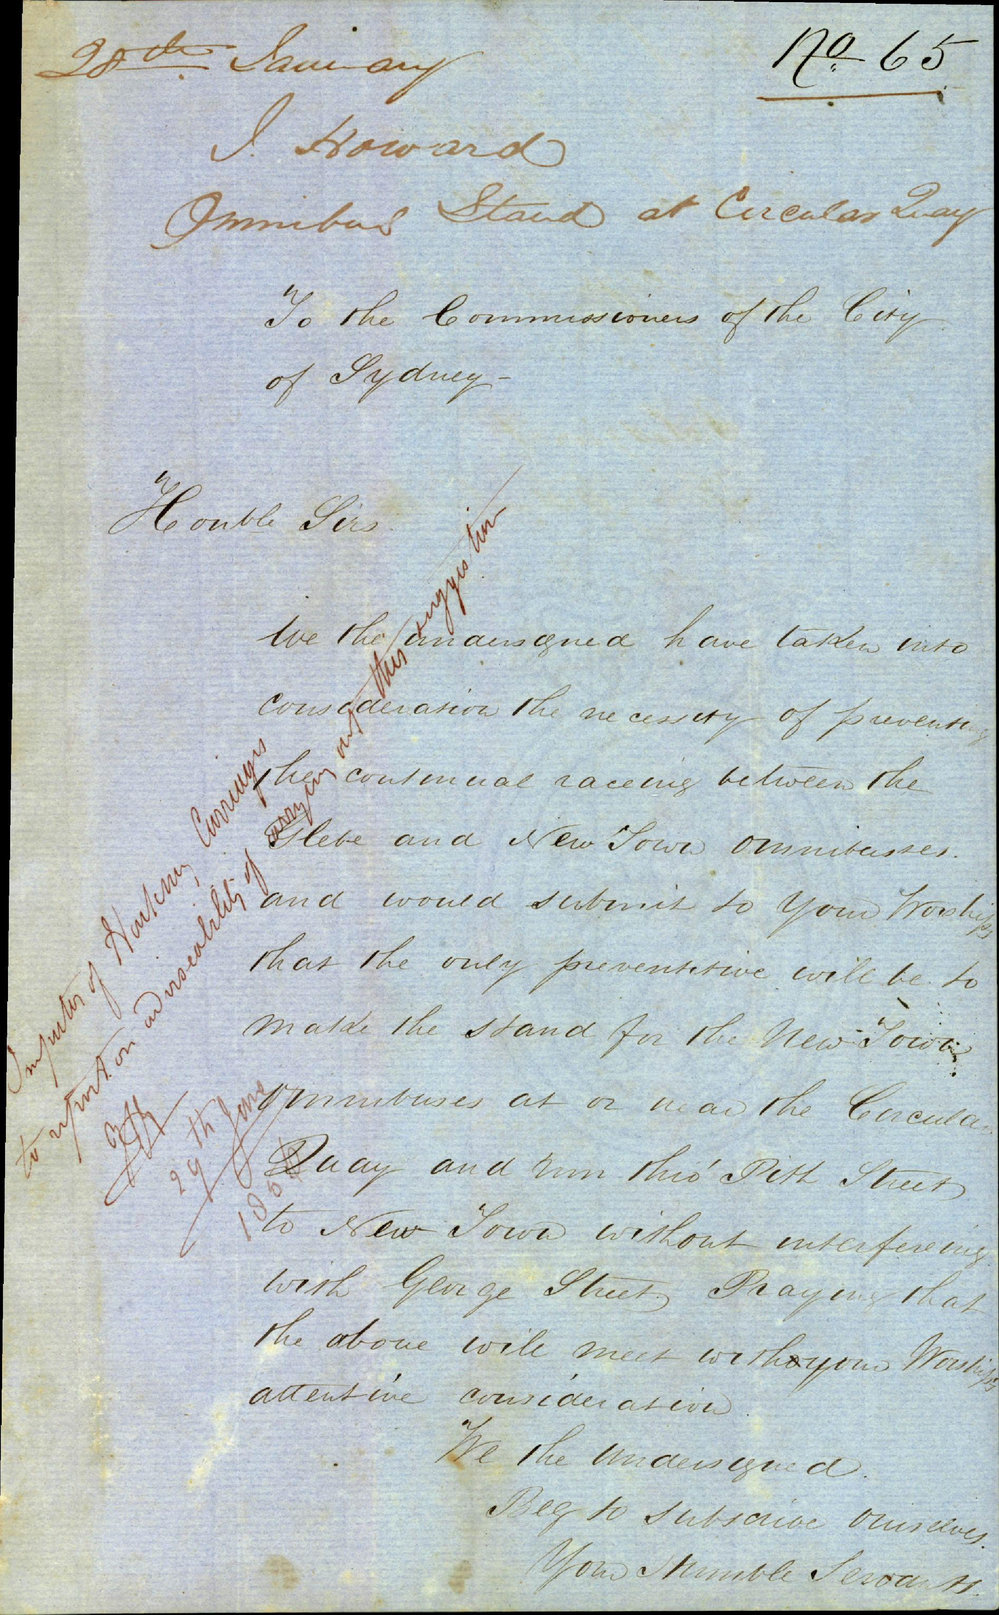 28th January
No 65
J. Howard
Omnibus Stand at Circular Quay
To the Commissioners of the City
of Sydney-
Honble Sirs
We the undersigned have taken into
consideration the necessity of preventing
the continual raceing between the
Glebe and New Town Omnibusses.
and would submit to your Worships
that the only preventitive will be to
make the stand for the New Town
Omnibuses at or near the Circular
Quay and run thro' Pitt Street
to New Town without interfereing
with George Street Praying that
the above will meet with your Worships
attentive consideration
We the undersigned.
Beg to subscribe ourselves.
Your Humble Servants.
Inspector of Hackney Carriages
to report on adviseability of carrying out this suggestion
29th Jany